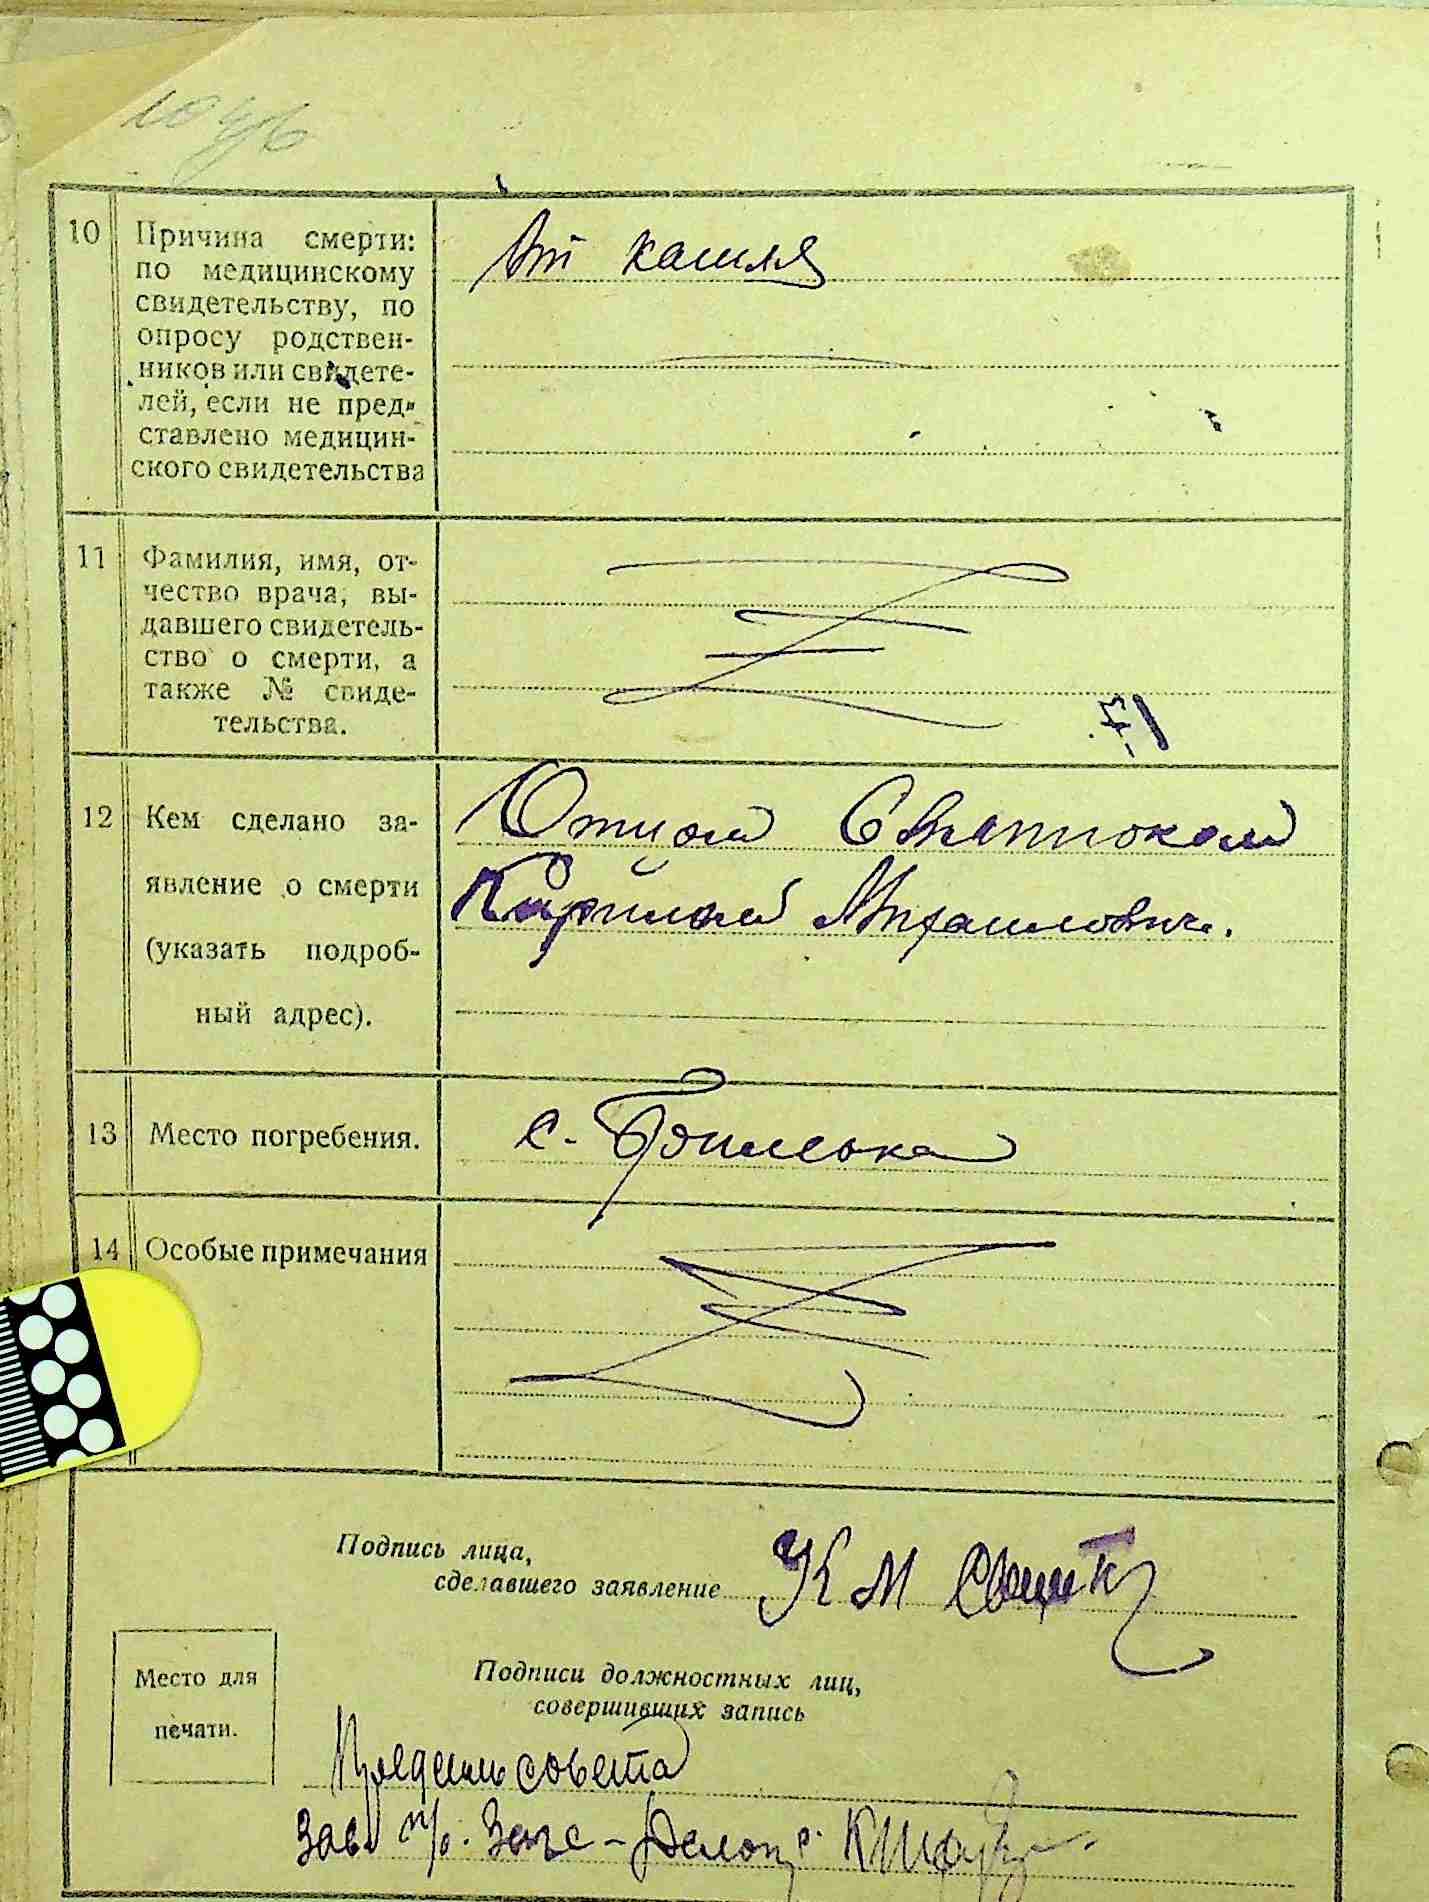 10 Причина смерти:
по медицинскому
свидетельству, по
опросу родствен-
ников или свидете-
лей, если не пред-
ставлено медицин-
ского свидетельства
От кашля
11 Фамилия, имя, от-
чество врача, вы-
давшего свидетель-
ство о смерти, а
также № свиде-
тельства.
12 Кем сделано за-
явление о смерти
(указать подроб-
ный адрес).
Отцом
Кирилом Михаилович.
13 Место погребения.
с.
14 Особые примечания
Подпись лица,
сделавшего заявление К М
Место для
печати.
Подписи должностных лиц,
совершивших запись
совета
Зав.